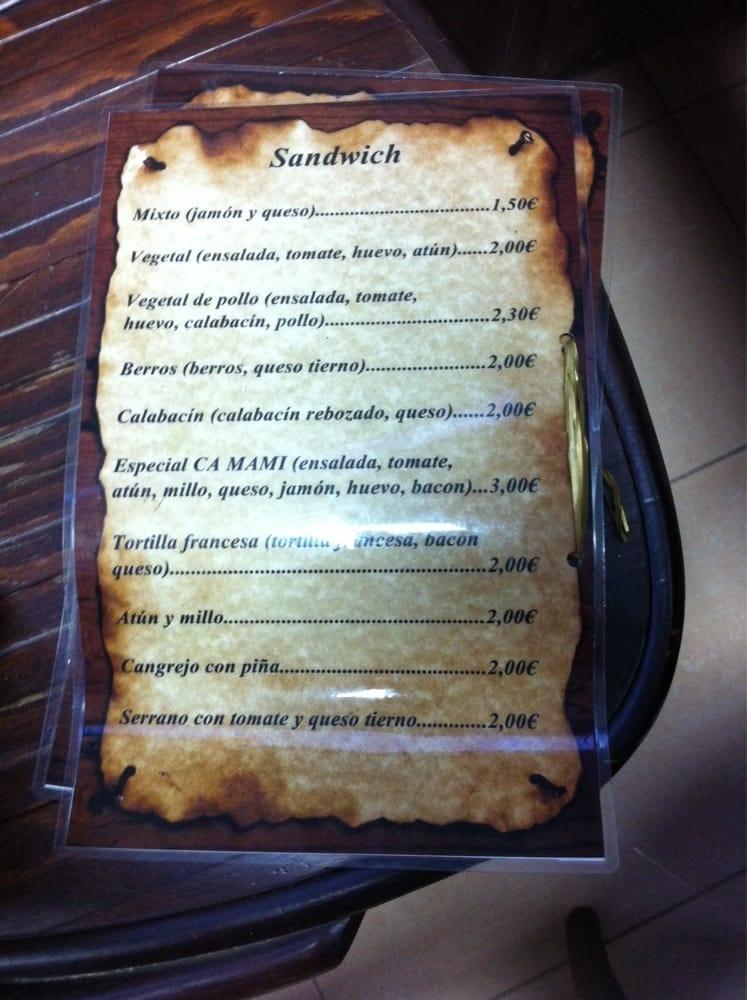 Sandwich
Mixto (jamón y queso)..............................1,50€
Vegetal (ensalada, tomate, huevo, atún)......2,00€
Vegetal de pollo (ensalada, tomate,
huevo, calabacín, pollo)............................2,30€
Berros (berros, queso tierno).....................2,00€
Calabacín (calabacín rebozado, queso)......2,00€
Especial CA MAMI (ensalada, tomate,
atún, millo, queso, jamón, huevo, bacon)...3,00€
Tortilla francesa (tortilla francesa, bacon
queso)......................................................2,00€
Atún y millo.............................................2,00€
Cangrejo con piña....................................2,00€
Serrano con tomate y queso tierno............2,00€